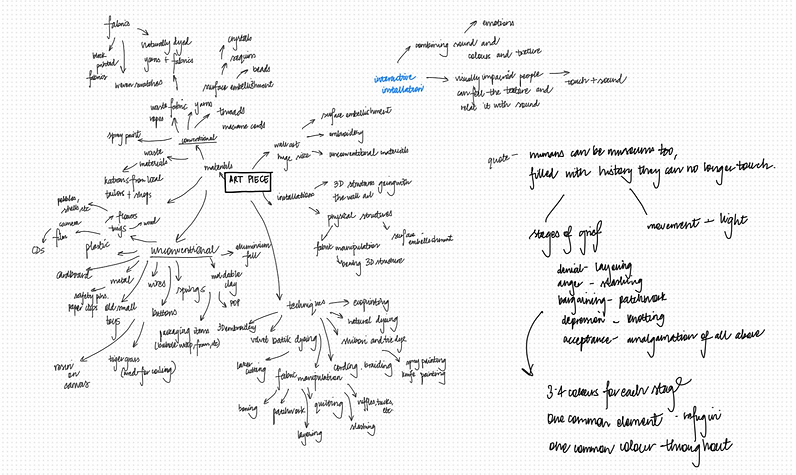 fabrics
block
printed
fabrics
naturally dyed
yarns + fabrics
woven swatches
crystals
sequins
beads
surface embellishment
waste fabric
yarns
ropes
threads
macrame cords
spray paint
conventional
waste
materials
from local
tailors + shops
materials
ART PIECE
wall art
huge size
surface embellishment
embroidery
unconventional materials
installations
3D structure going with
the wall art
physical structures
surface
embellishment
fabric manipulation
boning 3D structure
interactive
installation
combining sound and
colours and texture
emotions
visually impaired people
can feel the texture and
relate it with sound
touch + sound
pebbles,
shells, etc
camera
film
CDs
flowers
twigs
wool
plastic
unconventional
aluminium
foil
cardboard
metal
safety pins
paper clips
old small
toys
wires
springs
mouldable
clay
POP
buttons
packaging items
(bubble wrap, foam, etc)
resin
on
canvas
tiger grass
(used for coiling)
techniques
ecoprinting
natural dyeing
shibori and tie dye
3D embroidery
velvet batik dyeing
laser
cutting
fabric manipulation
cording, braiding
spray painting
knife painting
boning
patchwork
quilting
ruffles, tucks,
etc
layering
slashing
quote - humans can be museums too,
filled with history they can no longer touch.
stages of grief
movement + light
denial - layering
anger - slashing
bargaining - patchwork
depression - knotting
acceptance - amalgamation of all above
3-4 colours for each stage
one common element -
one common colour - throughout